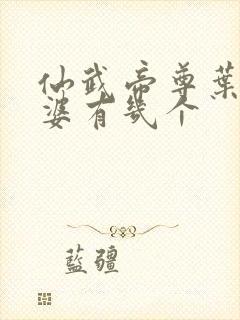 仙武帝尊葉
婆有幾个
藍疆